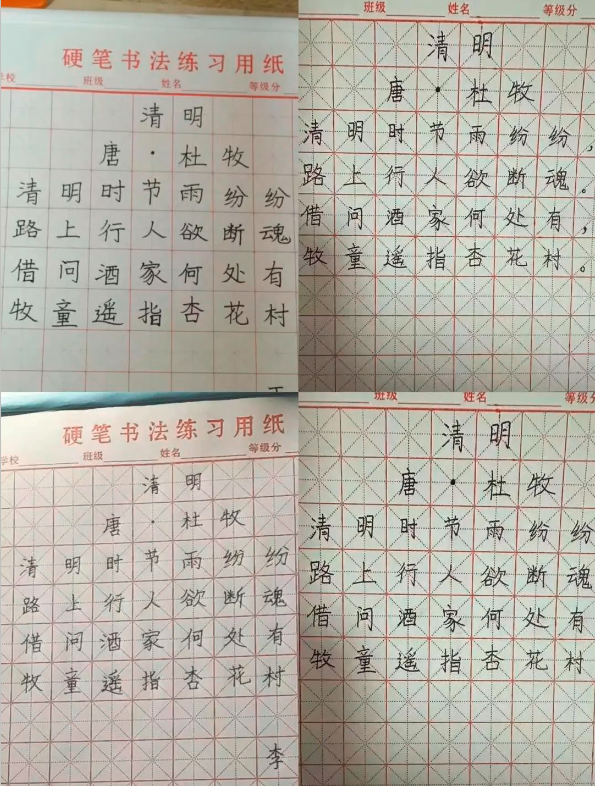 硬笔书法练习用纸
学校 班级 姓名 等级分
清明
唐·杜牧
清明时节雨纷纷
路上行人欲断魂
借问酒家何处有
牧童遥指杏花村
班级 姓名 等级分
清明
唐·杜牧
清明时节雨纷纷,
路上行人欲断魂。
借问酒家何处有,
牧童遥指杏花村。
硬笔书法练习用纸
学校 班级 姓名 等级分
清明
唐·杜牧
清明时节雨纷纷
路上行人欲断魂
借问酒家何处有
牧童遥指杏花村
李
班级 姓名 等级分
清明
唐·杜牧
清明时节雨纷纷
路上行人欲断魂
借问酒家何处有
牧童遥指杏花村